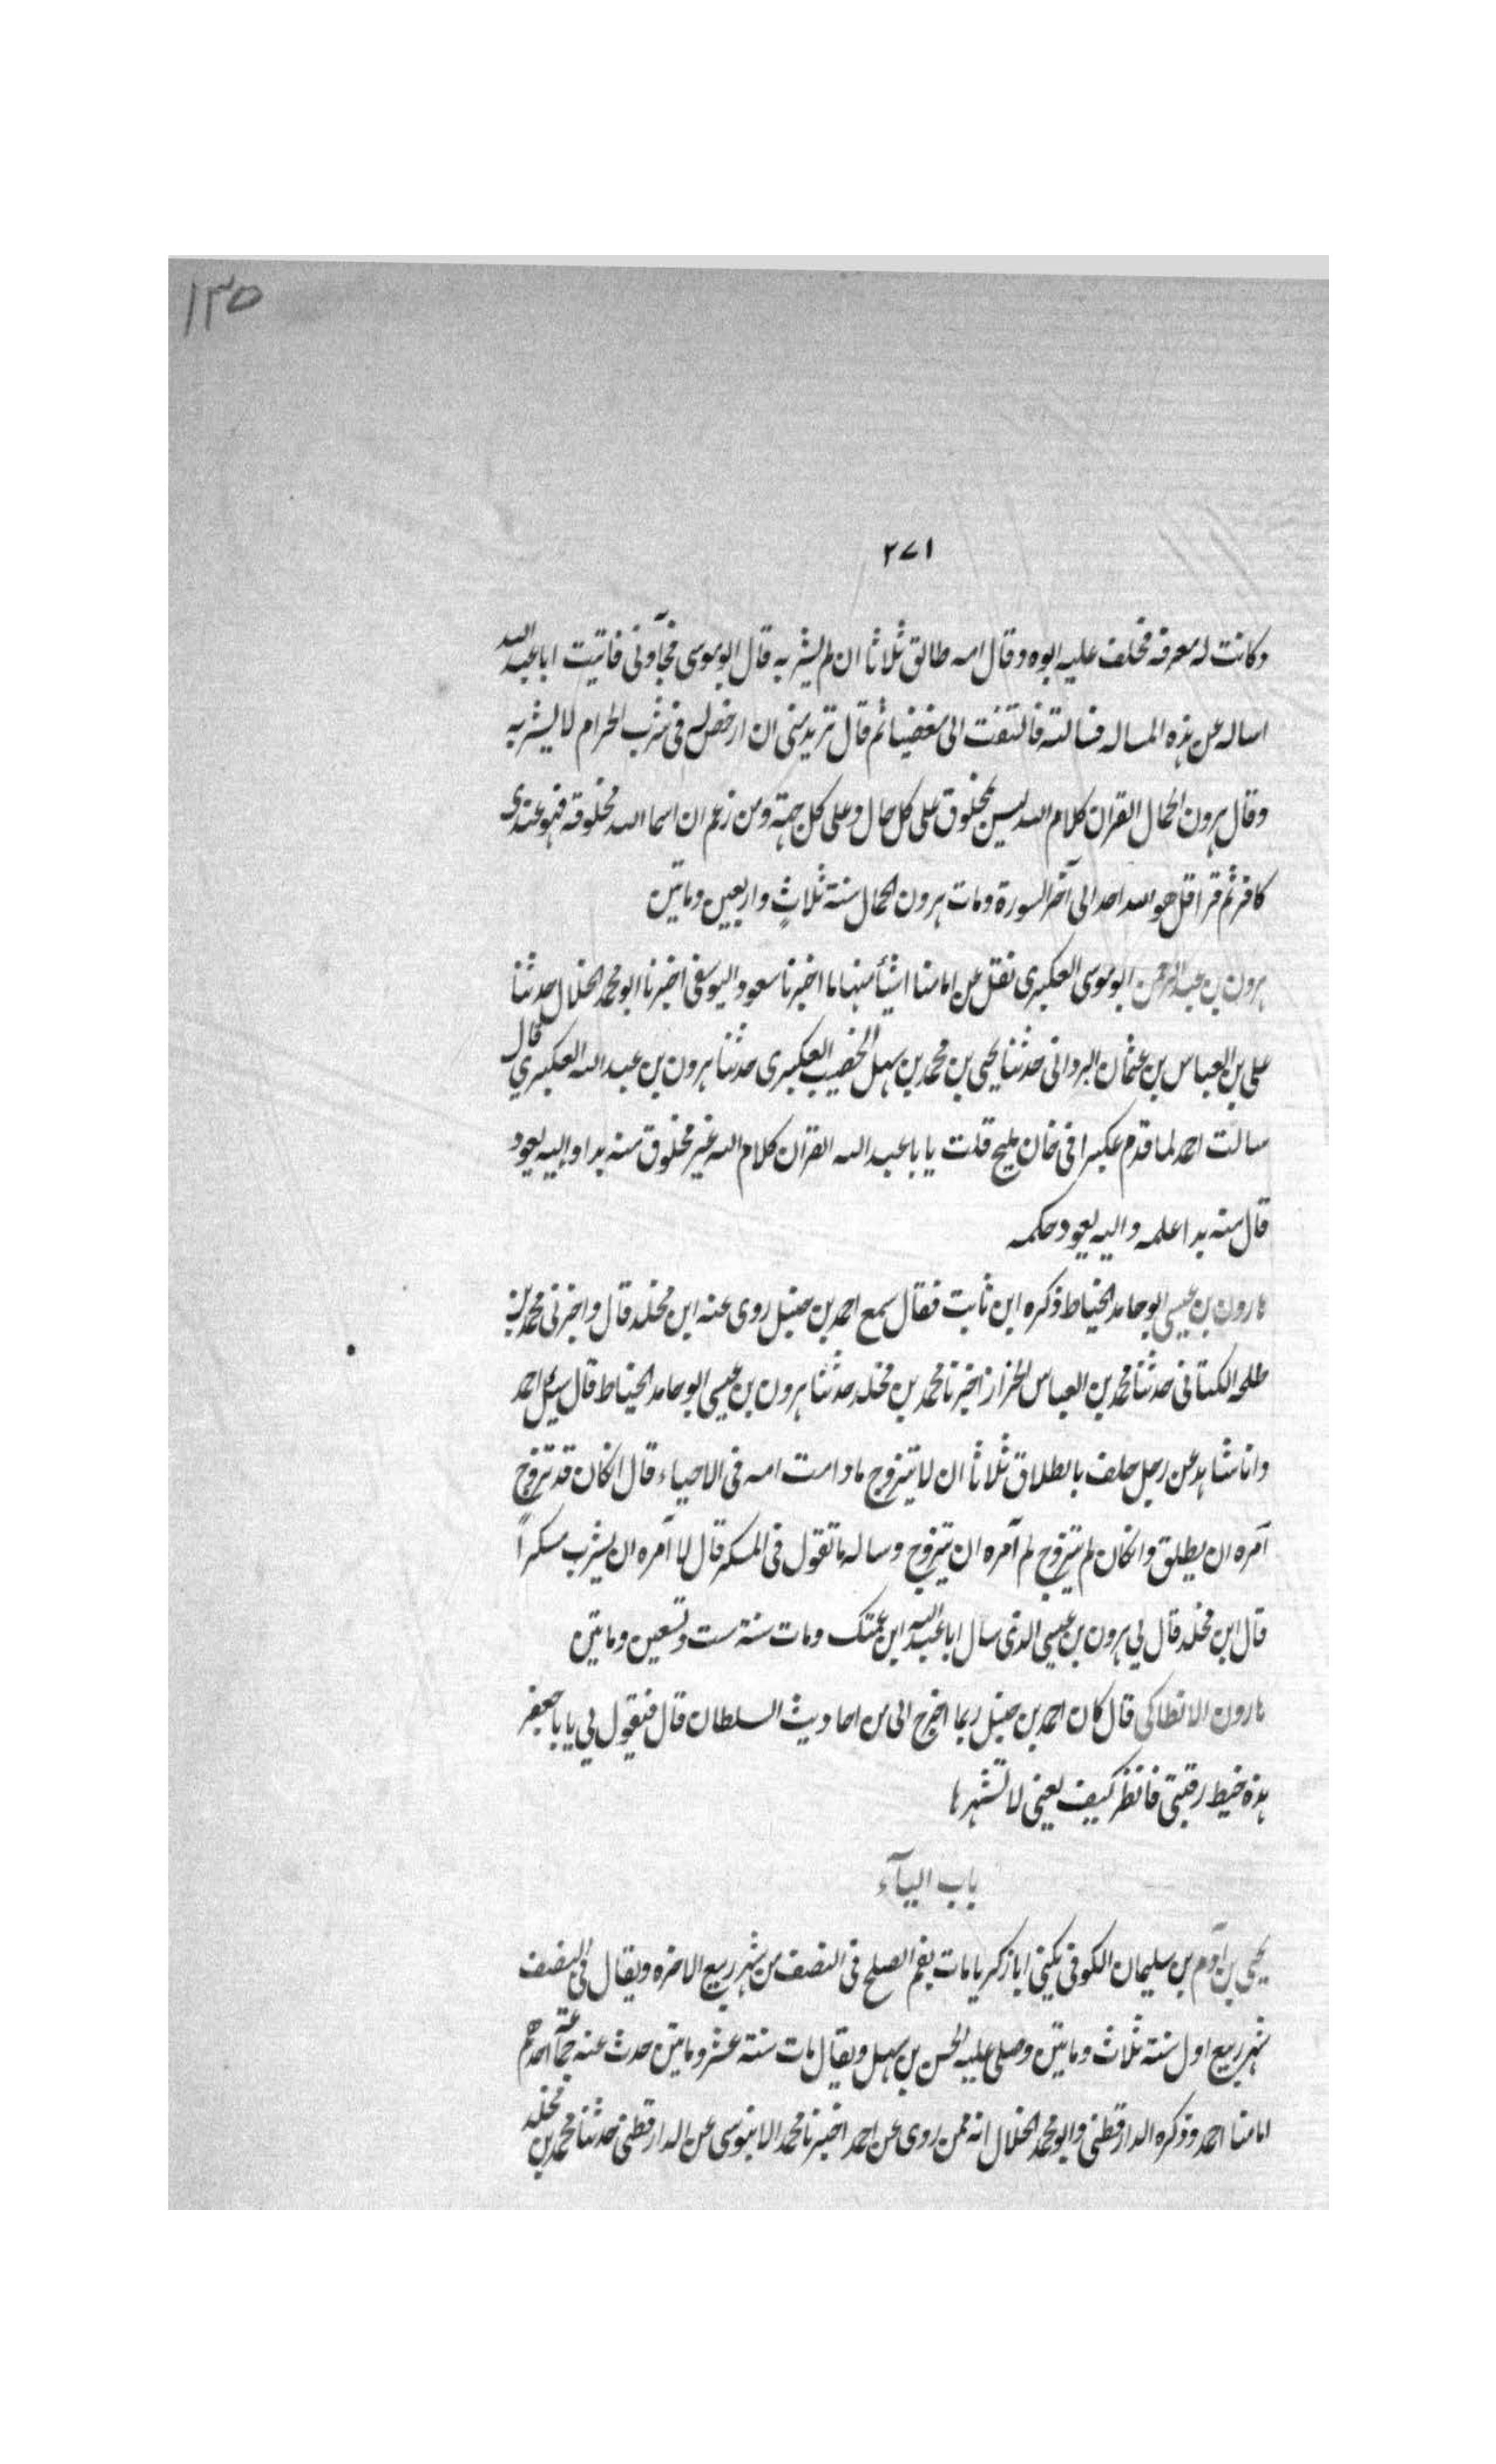 ١٣٥
٢٧١
وكانت له معرفه فحلف عليه ابوه وقال امه طالق ثلاثا ان لم يشربه قال ابو موسى فجآوني فاتيت ابا عبد الله
اساله عن هذه المساله فسالته فالتفت الى مغضبا ثم قال تريدمنى ان ارخص له فى شرب الحرام لا يشربه
وقال هرون الحمال القران كلام الله ليس بمخلوق على كل حال وعلى كل جهة ومن زعم ان اسما الله مخلوقة فهو عندى
كافر ثم قرا قل هو الله احد الى آخر السورة ومات هرون الحمال سنة ثلاثٍ واربعين وماتين
هرون بن عبد الرحمن ابو موسى العكبرى نقل عن امامنا اشيأ منها ما اخبرنا سعود اليوسفى اخبرنا ابو محمد الخلال حدثنا
على بن العباس بن عثمان البردانى حدثنا يحيى بن محمد بن سهل الخضيب العكبرى حدثنا هرون بن عبد الله العكبري قال
سالت احمد لما قدم عكبرا فى خان مليح قلت يا با عبد الله القران كلام الله غير مخلوق منه بدا واليه يعود
قال منه بدا علمه واليه يعود حكمه
هارون بن عيسى ابو حامد الخياط ذكره ابن ثابت فقال سمع احمد بن حنبل روى عنه ابن مخلد قال واخبرنى محمد بن
طلحه الكتانى حدثنا محمد بن العباس الخزاز اخبرنا محمد بن مخلد حدثنا هرون بن عيسى ابو حامد الخياط قال سيل احمد
وانا شاهد عن رجل حلف بالطلاق ثلاثا ان لا يتزوج مادامت امه فى الاحياء قال انكان قد تزوج
آمره ان يطلق وانكان لم يتزوج لم آمره ان يتزوج وساله ما تقول فى المسكر قال لا آمره ان يشرب مسكراً
قال ابن مخلد قال لي هرون بن عيسى الذى سال ابا عبد الله ابن عمتك ومات سنة ست وتسعين وماتين
هارون الانطاكى قال كان احمد بن حنبل ربما اخرج الى من احاديث السلطان قال فيقول لي يا با جعفر
هذه خيط رقبتى فانظر كيف يعنى لا تشهرها
باب اليآء
يحيى بن آدم بن سليمان الكوفى يكنى ابا زكريا مات بفم الصلح فى النصف من شهر ربيع الاخره ويقال فى النصف
شهر ربيع اول سنة ثلاث وماتين وصلى عليه الحسن بن سهل ويقال مات سنة عشر وماتين حدث عنه جماعة احدهم
امامنا احمد وذكره الدارقطنى وابو محمد الخلال انه ممن روى عن احمد اخبرنا محمد الابنوسى عن الدارقطنى حدثنا محمد بن مخلد